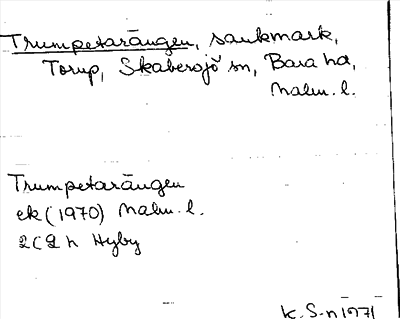 Trumpetarängen, sankmark,
Torup, Skabersjö sn, Bara hd,
Malm. l.
Trumpetarängen
ek (1970) Malm. l.
2C 2 h Hyby
K. S-n 1971